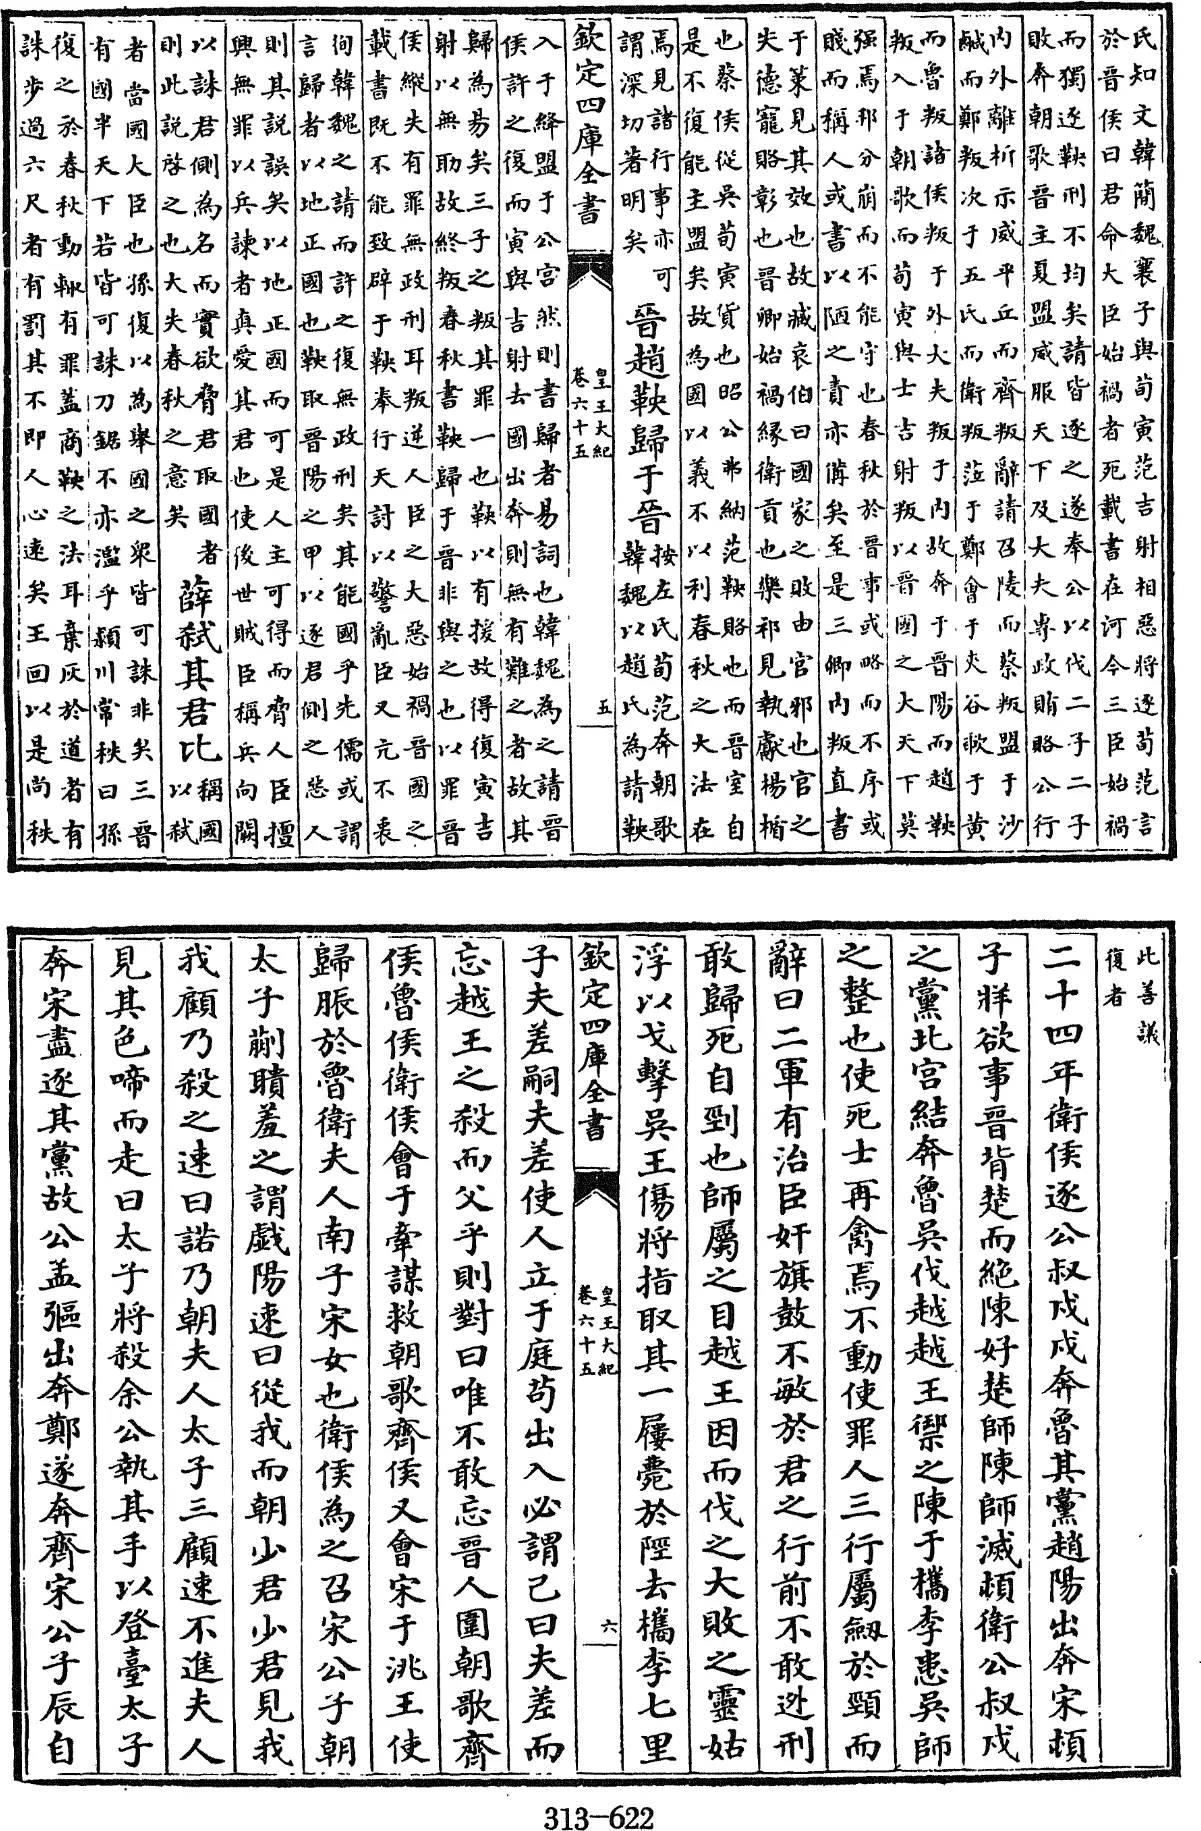 氏知文韓簡魏襄子與荀寅范吉射相惡將逐荀范言
於晉侯曰君命大臣始禍者死載書在河今三臣始禍
而獨逐鞅刑不均矣請皆逐之遂奉公以伐二子二子
敗奔朝歌晉主夏盟威服天下及大夫專政賄賂公行
内外離析示威平丘而齊叛辭請召陵而蔡叛盟于沙
鹹而鄭叛次于五氏而衛叛涖于鄭會于夾谷歃于黄
而魯叛諸侯叛于外大夫叛于内故奔于晉陽而趙鞅
叛入于朝歌而荀寅與士吉射叛以晉國之大天下莫
强焉邦分崩而不能守也春秋於晉事或略而不序或
賤而稱人或書以陋之責亦備矣至是三卿内叛直書
于策見其效也故臧哀伯曰國家之敗由官邪也官之
失德寵賂彰也晉卿始禍緣衛貢也樂祁見執獻楊楯
也蔡侯從吳荀寅貨也昭公弗納范鞅賂也而晉室自
是不復能主盟矣故為國以義不以利春秋之大法在
焉見諸行事亦可
謂深切著明矣
晉趙鞅歸于晉
按左氏荀范奔朝歌
韓魏以趙氏為請鞅
欽定四庫全書
皇王大紀
卷六十五
五
入于絳盟于公宮然則書歸者易詞也韓魏為之請晉
侯許之復而寅與吉射去國出奔則無有難之者故其
歸為易矣三子之叛其罪一也鞅以有援故得復寅吉
射以無助故終叛春秋書鞅歸于晉非與之也以罪晉
侯縱失有罪無政刑耳叛逆人臣之大惡始禍晉國之
載書既不能致辟于鞅奉行天討以警亂臣又亢不衷
徇韓魏之請而許之復無政刑矣其能國乎先儒或謂
言歸者以地正國也鞅取晉陽之甲以逐君側之惡人
則其説誤矣以地正國而可是人主可得而脅人臣擅
興無罪以兵諫者真愛其君也使後世賊臣稱兵向闕
以誅君側為名而實欲脅君取國者
則此説啓之也大失春秋之意矣
薛弑其君比
稱國
以弑
者當國大臣也孫復以為舉國之衆皆可誅非矣三晉
有國半天下若皆可誅刀鋸不亦濫乎潁川常秩曰孫
復之於春秋動輒有罪蓋商鞅之法耳棄灰於道者有
誅步過六尺者有罰其不即人心逺矣王回以是尚秩
此善議
復者
二十四年衛侯逐公叔戍戍奔魯其黨趙陽出奔宋頓
子牂欲事晉背楚而絶陳好楚師陳師滅頓衛公叔戍
之黨北宮結奔魯吳伐越越王禦之陳于檇李患吳師
之整也使死士再禽焉不動使罪人三行屬劔於頸而
辭曰二軍有治臣奸旗鼓不敏於君之行前不敢逃刑
敢歸死自剄也師屬之目越王因而伐之大敗之靈姑
浮以戈擊吳王傷將指取其一屨薨於陘去檇李七里
欽定四庫全書
皇王大紀
卷六十五
六
子夫差嗣夫差使人立于庭茍出入必謂己曰夫差而
忘越王之殺而父乎則對曰唯不敢忘晉人圍朝歌齊
侯魯侯衛侯會于牽謀救朝歌齊侯又會宋于洮王使
歸脤於魯衛夫人南子宋女也衛侯為之召宋公子朝
太子蒯聵羞之謂戲陽速曰從我而朝少君少君見我
我顧乃殺之速曰諾乃朝夫人太子三顧速不進夫人
見其色啼而走曰太子將殺余公執其手以登臺太子
奔宋盡逐其黨故公孟彄出奔鄭遂奔齊宋公子辰自
313-622